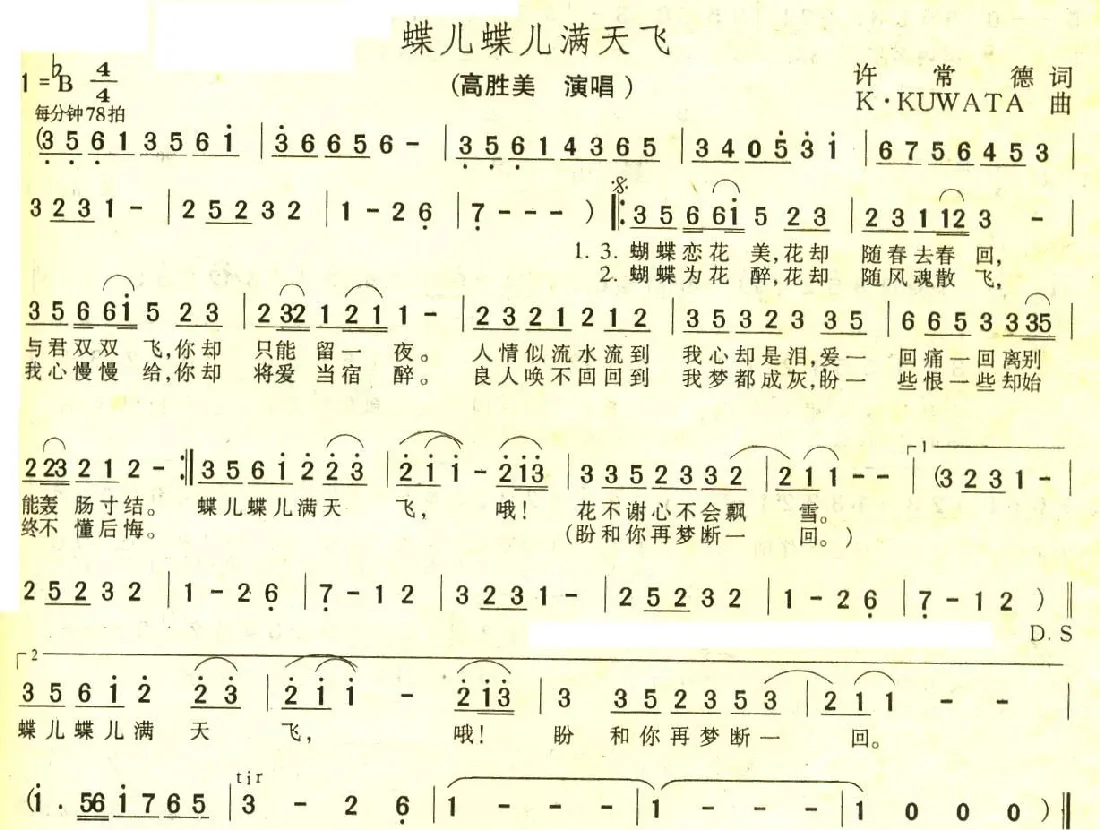 蝶儿蝶儿满天飞
1=♭B 4/4 (高胜美 演唱) 许常德 词
每分钟78拍 K·KUWATA 曲
(3 5 6 1 3 5 6 i | 3 6 6 5 6 - | 3 5 6 1 4 3 6 5 | 3 4 0 5 3 i | 6 7 5 6 4 5 3 |
3 2 3 1 - | 2 5 2 3 2 | 1 - 2 6 | 7 - - - ) 𝄋 |: 3 5 6 6 i 5 2 3 | 2 3 1 1 2 3 - |
1. 3. 蝴蝶恋花 美,花却 随春去春 回,
2. 蝴蝶为花 醉,花却 随风魂散 飞,
3 5 6 6 i 5 2 3 | 2 3 2 1 2 1 1 - | 2 3 2 1 2 1 2 | 3 5 3 2 3 3 5 | 6 6 5 3 3 3 5 |
与君双双 飞,你却 只能 留一 夜。 人情似流水流到 我心却是泪,爱一 回痛一回离别
我心慢慢 给,你却 将爱 当宿 醉。 良人唤不回回到 我梦都成灰,盼一 些恨一些却始
2 2 3 2 1 2 - :| 3 5 6 i 2 2 3 | 2 i i - 2 i 3 | 3 3 5 2 3 3 2 | 2 1 1 - - | 1 (3 2 3 1 - |
能轰 肠寸结。 蝶儿蝶儿满天 飞, 哦! 花不谢心不会飘 雪。
终不 懂后悔。 (盼和你再梦断一 回。)
2 5 2 3 2 | 1 - 2 6 | 7 - 1 2 | 3 2 3 1 - | 2 5 2 3 2 | 1 - 2 6 | 7 - 1 2 ) ‖
D. S
2
3 5 6 i 2 2 3 | 2 i i - 2 i 3 | 3 3 5 2 3 5 3 | 2 1 1 - - |
蝶儿蝶儿满 天 飞, 哦! 盼 和你再梦断一 回。
tjr
(i · 5 6 i 7 6 5 | 3 - 2 6 | 1 - - - | 1 - - - | 1 0 0 0 ) ‖